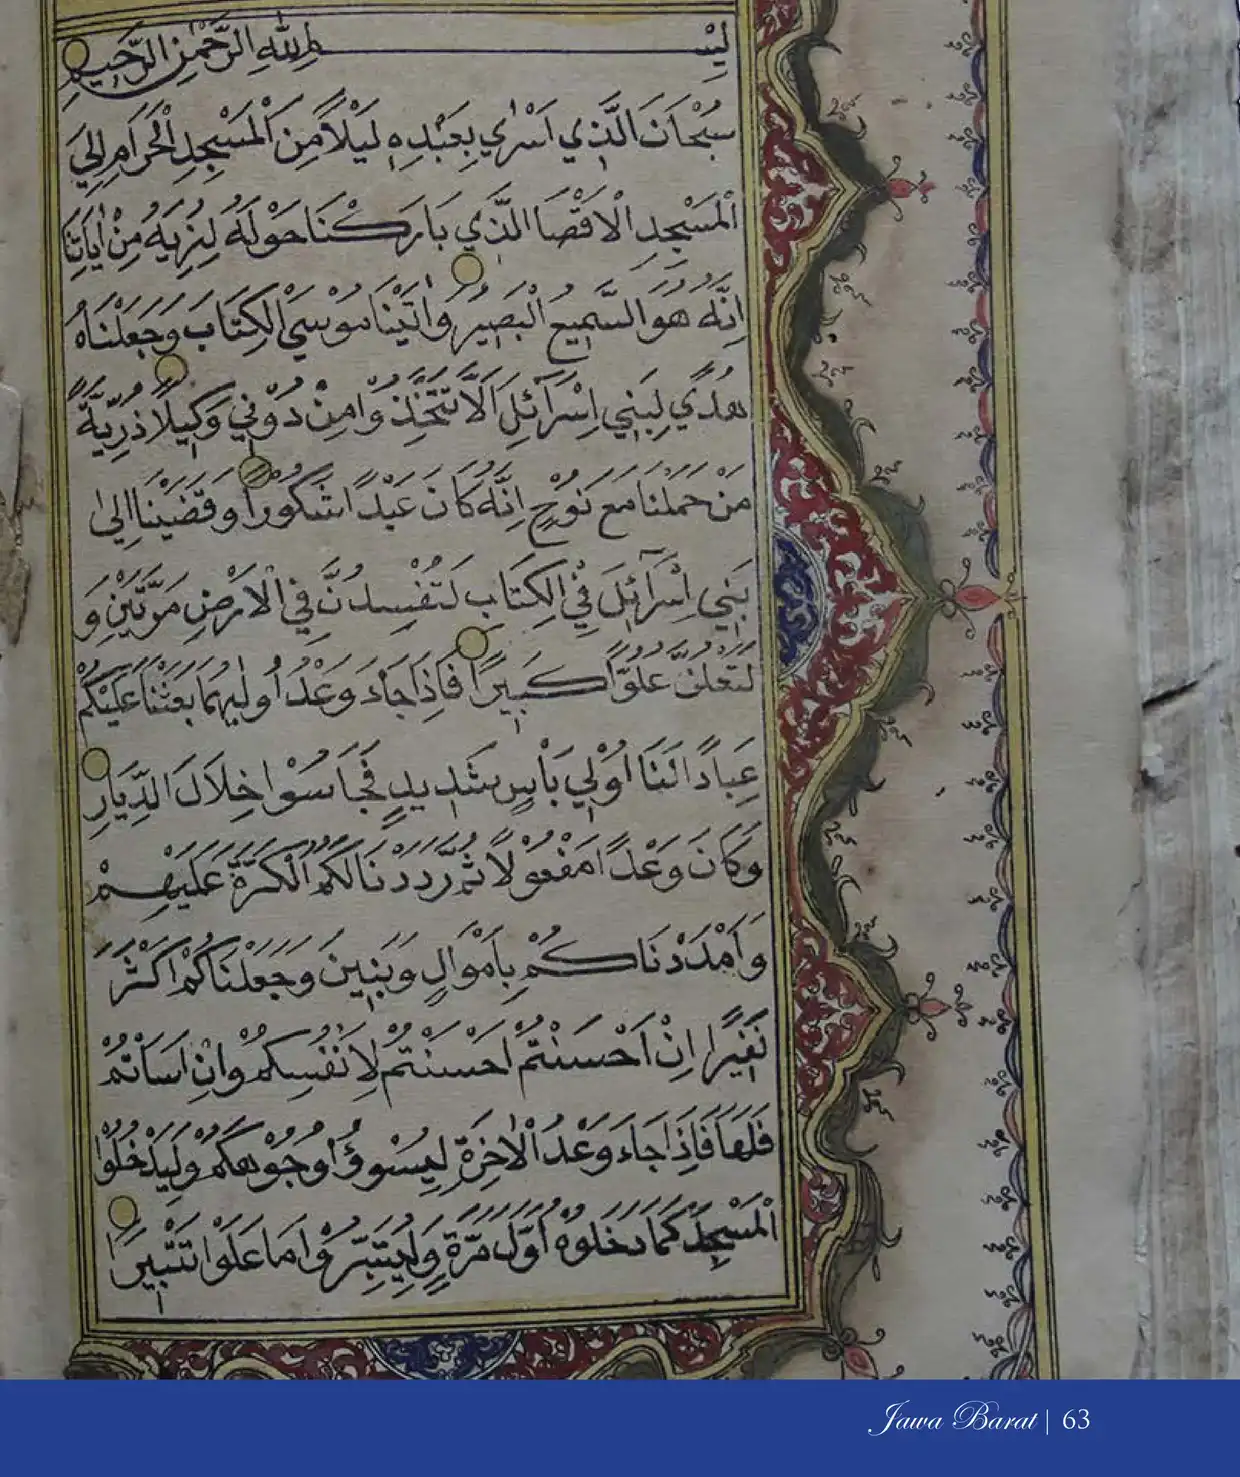 بِسْمِ اللهِ الرَّحْمٰنِ الرَّحِيمِ
سُبْحَانَ الَّذِي اَسْرٰي بِعَبْدِهِ لَيْلًا مِنَ الْمَسْجِدِ الْحَرَامِ اِلَي
الْمَسْجِدِ الْاَقْصَا الَّذِي بَارَكْنَا حَوْلَهُ لِنُرِيَهُ مِنْ اٰيَاتِنَا
اِنَّهُ هُوَ السَّمِيعُ الْبَصِيرُ وَاٰتَيْنَا مُوْسَي الْكِتَابَ وَجَعَلْنَاهُ
هُدًي لِبَنِي اِسْرَآئِلَ اَلَّا تَتَّخِذُوْا مِنْ دُوْنِي وَكِيلًا ذُرِّيَّةً
مَنْ حَمَلْنَا مَعَ نُوْحٍ اِنَّهُ كَانَ عَبْدًا شَكُوْرًا وَقَضَيْنَا اِلٰي
بَنِي اِسْرَآئِلَ فِي الْكِتَابِ لَتُفْسِدُنَّ فِي الْاَرْضِ مَرَّتَيْنِ وَ
لَتَعْلُنَّ عُلُوًّا كَبِيرًا فَاِذَا جَاءَ وَعْدُ اُولٰيهُمَا بَعَثْنَا عَلَيْكُمْ
عِبَادًا لَنَا اُوْلِي بَأْسٍ شَدِيدٍ فَجَاسُوْا خِلَالَ الدِّيَارِ
وَكَانَ وَعْدًا مَفْعُوْلًا ثُمَّ رَدَدْنَا لَكُمُ الْكَرَّةَ عَلَيْهِمْ
وَاَمْدَدْنَاكُمْ بِاَمْوَالٍ وَبَنِينَ وَجَعَلْنَاكُمْ اَكْثَرَ
نَفِيرًا اِنْ اَحْسَنْتُمْ اَحْسَنْتُمْ لِاَنْفُسِكُمْ وَاِنْ اَسَأْتُمْ
فَلَهَا فَاِذَا جَاءَ وَعْدُ الْاٰخِرَةِ لِيَسُوْؤُا وُجُوْهَكُمْ وَلِيَدْخُلُوْا
الْمَسْجِدَ كَمَا دَخَلُوْهُ اَوَّلَ مَرَّةٍ وَلِيُتَبِّرُوْا مَا عَلَوْا تَتْبِيرًا
Jawa Barat | 63